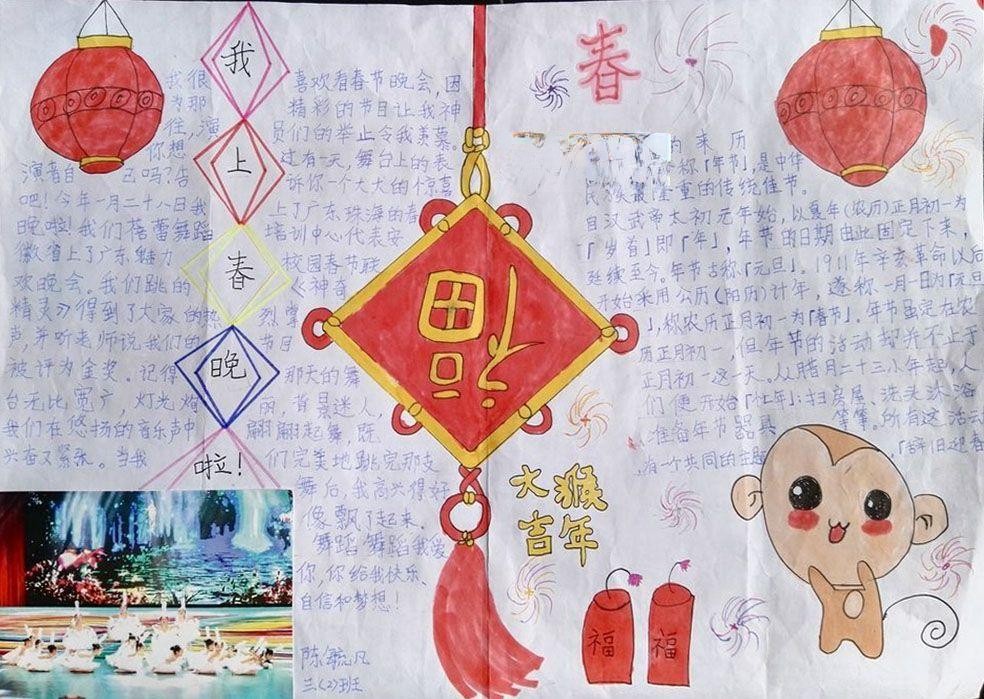 我上春晚啦!
我很喜欢看春节晚会,因
为那精彩的节目让我神
往,演员们的举止令我羡慕。
你想过有一天,舞台上的表
演者自己吗?告诉你一个大大的惊喜
吧!今年一月二十八日我上了广东珠海的春
晚啦!我们蓓蕾舞蹈培训中心代表安
徽省上了广东魅力校园春节联
欢晚会。我们跳的《神奇
精灵》得到了大家的热烈掌
声,并听老师说我们的节目
被评为金奖。记得那天的舞
台无比宽广,灯光炮丽,背景迷人,
我们在悠扬的音乐声中翩翩起舞,既
兴奋又紧张。当我们完美地跳完那支
舞后,我高兴得好
像飘了起来。
舞蹈舞蹈我爱
你,你给我快乐、
自信和梦想!
陈毓凡
三(2)班
福
春
来历
称「年节」,是中华
民族最隆重的传统佳节。
自汉武帝太初元年始,以夏年(农历)正月初一为
「岁首」即「年」,年节的日期由此固定下来,
延续至今。年节古称「元旦」。1911年辛亥革命以后
开始采用公历(阳历)计年,遂称一月一日为「元旦
」,称农历正月初一为「春节」。年节虽定在农
历正月初一,但年节的活动却并不止于
正月初一这一天。从腊月二十三小年起,人
们便开始「忙年」:扫房屋、洗头沐浴
准备年节器具等等。所有这活动
,有一个共同的主题「辞旧迎春
大猴
吉年
福 福